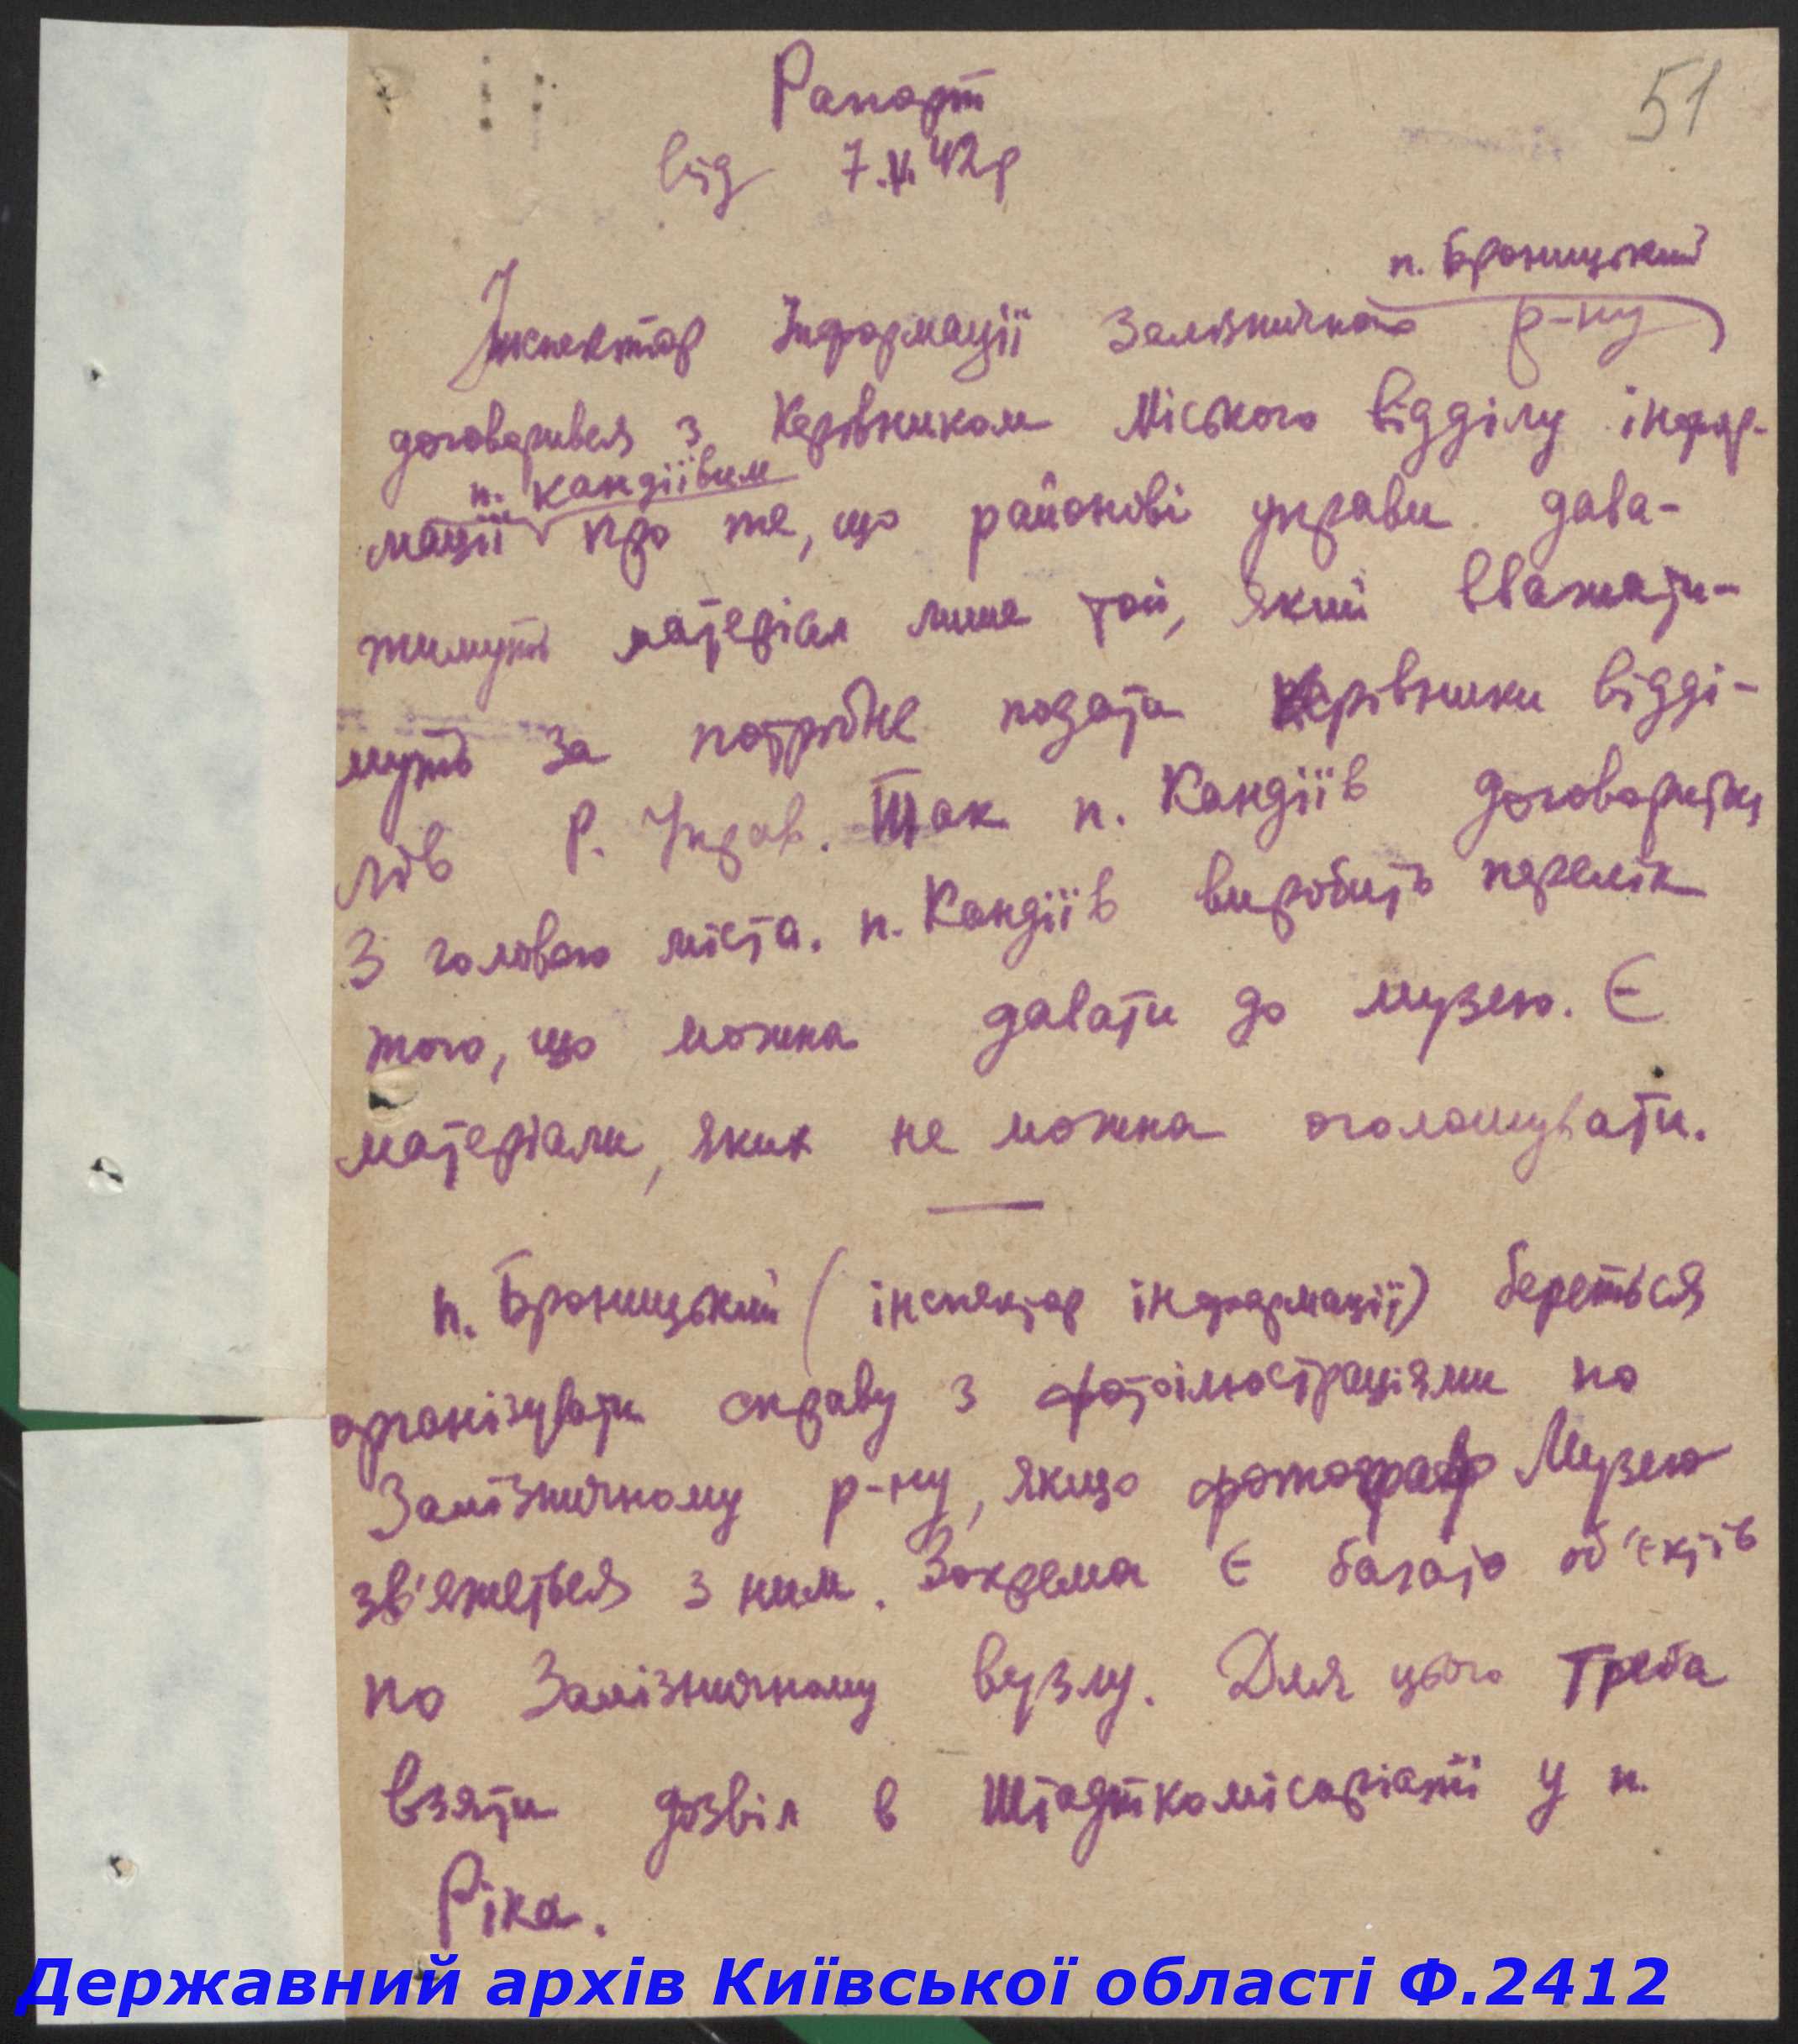 51
Рапорт
від 7.V.42р
п. Броницький
Інспектор Інформації Залізничного р-ну
договорився з Керівником Міського відділу інфор-
п. Кандіївим
мації про те, що районові управи дава-
тимуть матеріал лише той, який вважати-
муть за потрібне подати Керівники відді-
лів Р. Управ. Так п. Кандіїв договоритьс
з головою міста. п. Кандіїв виробить перелік
того, що можна давати до музею. Є
матеріали, яких не можна оголошувати.
п. Броницький (інспектор інформації) береться
організувати справу з фотоілюстраціями по
Залізничному р-ну, якщо фотограф Музею
зв'яжеться з ним. Зокрема є багато об'єктів
по Залізничному вузлу. Для цього треба
взяти дозвіл в Штадткомісаріаті у п.
Ріка.
Державний архів Київської області Ф.2412